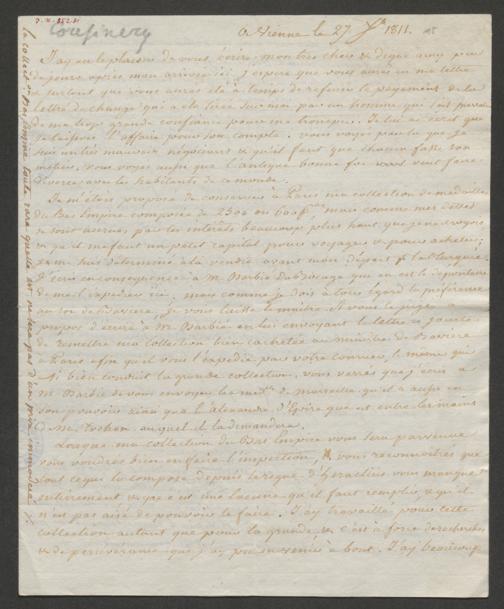 Cousinery
a Vienne le 27 1811.
J'ay eu le plaisir de vous écrire, mon tres cher & digne amy peu
de jours après mon arrivée ici, j'espere que vous aurez eu ma lettre
& surtout que vous aurez été à temps de refuser le payement de la
lettre de change qui a été tirée sur moi par un homme qui s'est
de ma trop grande confiance pour me tromper. Je lui ai écrit que
je laissois l'affaire pour son compte. vous voyez par la que je
suis un très mauvais négociant & qu'il faut que chacun fasse son
métier. vous voyez aussi que l'antique bonne foi veut faire
divorce avec les habitants de ce monde.
Je m'étois proposé de conserver à Paris ma collection de medailles
du Bas Empire composée de 2500 ou mais comme mes dettes
se sont accrues par les interets beaucoup plus haut que je ne croyois
& qu'il me faut un petit capital pour voyager & pour acheter,
je me suis déterminé à la vendre avant mon départ
J'écris en consequence à M. Barbié du Bocage qui en est le depositaire
de me l'expedier ici; mais comme je dois à tous égard la préférence
au roi de Bavière, je vous laisse le maitre si vous le jugez à
propos d'ecrire à M. Barbié en lui envoyant la lettre ci jointe
de remettre ma collection bien cachetée au ministre de Bavière
à Paris afin qu'il vous l'expedie par votre courier, le meme qui
a si bien conduit la grande collection. vous verrez que j'écris à
M. Barbié de vous envoyer les med. de Marseille qu'il a aussi en
son pouvoir ainsi que l'Alexandre d'Epire qui est entre les mains
de M. Rohan auquel il la demandera.
Lorsque ma collection du Bas Empire vous sera parvenue
vous voudrez bien en faire l'inspection, & vous reconnoitrez que
tout ce qui la compose depuis le regne d'Heraclius vous manque
entierement & que c'est une lacune qu'il faut remplir & qu'il
n'est pas aisé de pouvoir le faire. J'ay travaillé pour cette
collection autant que pour la grande & c'est à force de recherches
& de perséverance que j'ay pu en venir à bout. J'ay beaucoup